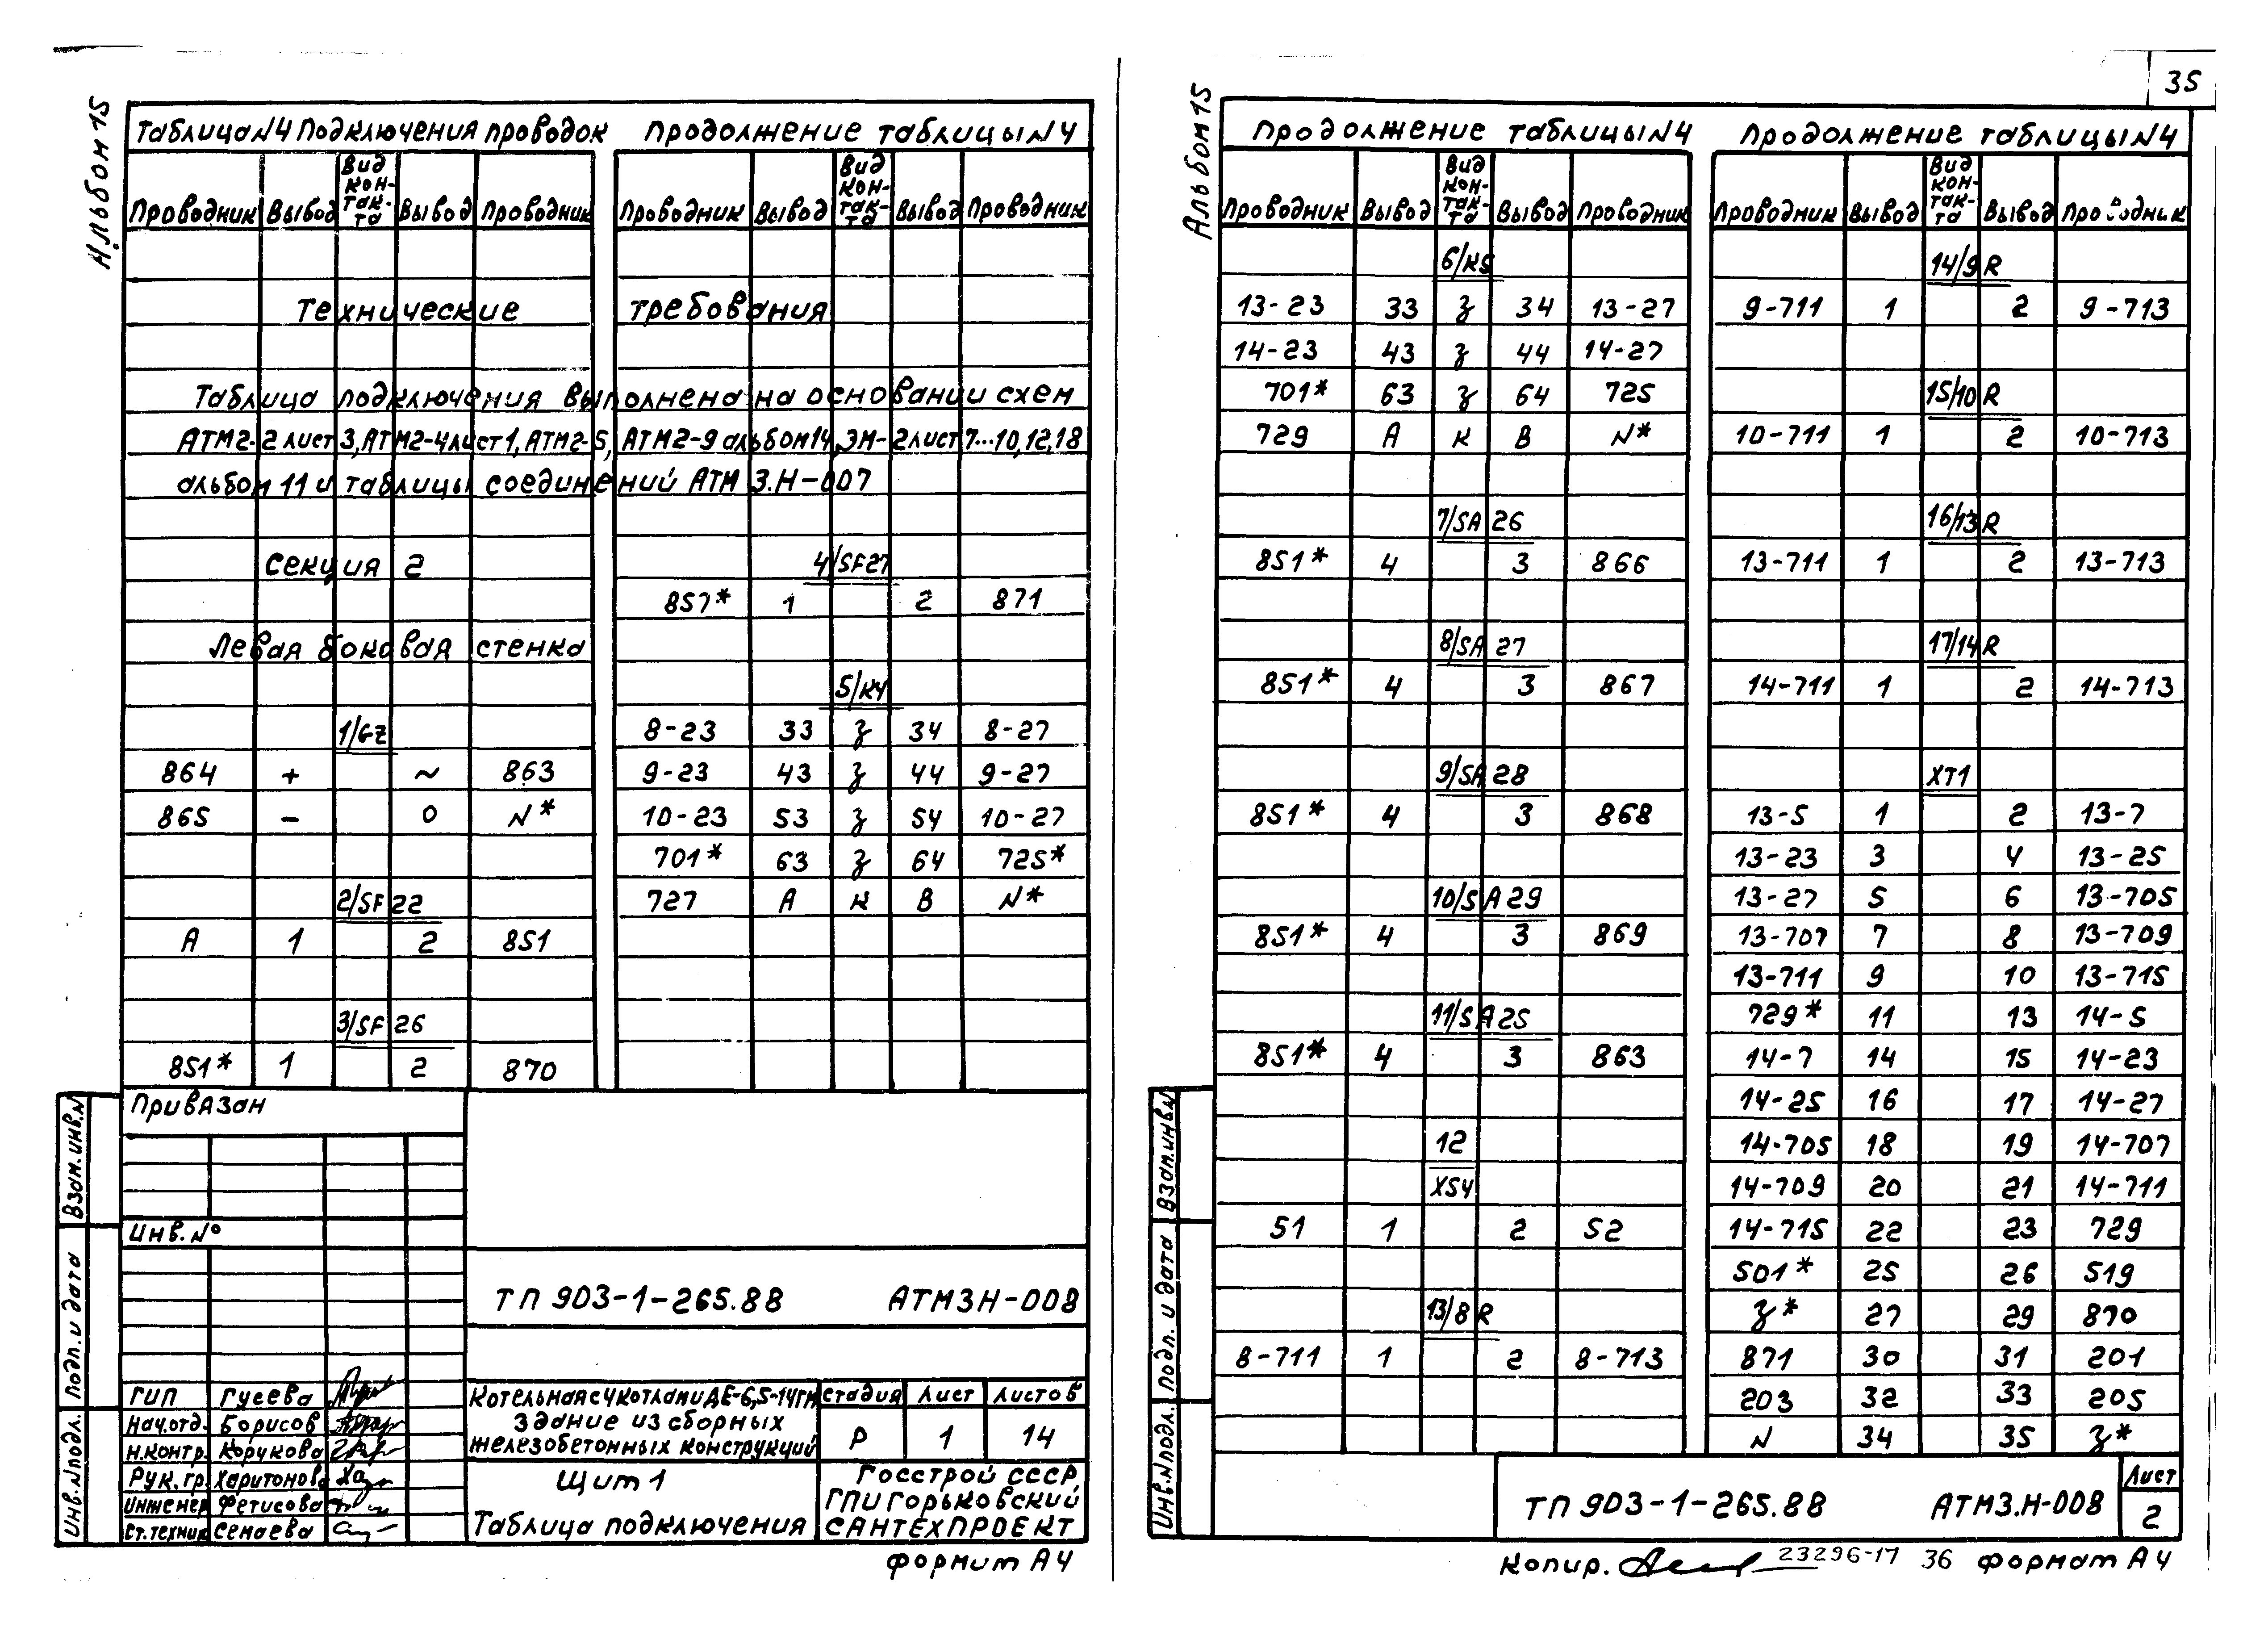 35
Альбом 15
Таблица N4 Подключения проводок
Продолжение таблицы N4
Проводник Вывод Вид кон-так-та Вывод Проводник
Проводник Вывод Вид кон-так-та Вывод Проводник
Технические требования
Таблица подключения выполнена на основании схем
АТМ2-2 лист 3, АТМ2-4 лист 1, АТМ2-5, АТМ2-9 альбом 14, ЭМ-2 лист 7...10,12,18
альбом 11 и таблицы соединений АТМ 3.Н-007
Секция 2
Левая боковая стенка
1/GZ
864 + ~ 863
865 – 0 N*
2/SF22
А 1 2 851
3/SF26
851* 1 2 870
4/SF27
857* 1 2 871
5/К4
8-23 33 з 34 8-27
9-23 43 з 44 9-27
10-23 53 з 54 10-27
701* 63 з 64 725*
727 А К В N*
Привязан
Инв. N°
ТП 903-1-265.88 АТМ3Н-008
ГИП Гусева
Нач.отд. Борисов
Н.контр. Корукова
Рук.гр. Харитонова
Инженер Фетисова
Ст.техник Семаева
Котельная с 4 котлами ДЕ-6,5-14ГМ
Здание из сборных
железобетонных конструкций
Стадия Лист Листов
Р 1 14
Щит 1
Таблица подключения
Госстрой СССР
ГПИ Горьковский
САНТЕХПРОЕКТ
Взам.инв.N
Подп. и дата
Инв.Nподл.
Формат А4
Альбом 15
Продолжение таблицы N4
Продолжение таблицы N4
Проводник Вывод Вид кон-так-та Вывод Проводник
Проводник Вывод Вид кон-так-та Вывод Проводник
6/К5
13-23 33 з 34 13-27
14-23 43 з 44 14-27
701* 63 з 64 725
729 А К В N*
7/SA26
851* 4 3 866
8/SA27
851* 4 3 867
9/SA28
851* 4 3 868
10/SA29
851* 4 3 869
11/SA25
851* 4 3 863
12
XS4
51 1 2 52
13/8R
8-711 1 2 8-713
14/9R
9-711 1 2 9-713
15/10R
10-711 1 2 10-713
16/13R
13-711 1 2 13-713
17/14R
14-711 1 2 14-713
XT1
13-5 1 2 13-7
13-23 3 4 13-25
13-27 5 6 13-705
13-707 7 8 13-709
13-711 9 10 13-715
729* 11 13 14-5
14-7 14 15 14-23
14-25 16 17 14-27
14-705 18 19 14-707
14-709 20 21 14-711
14-715 22 23 729
501* 25 26 519
з* 27 29 870
871 30 31 201
203 32 33 205
N 34 35 з*
Взам.инв.N
Подп. и дата
Инв.Nподл.
ТП 903-1-265.88 АТМ3.Н-008
Лист
2
Копир. 23296-17 36 Формат А4